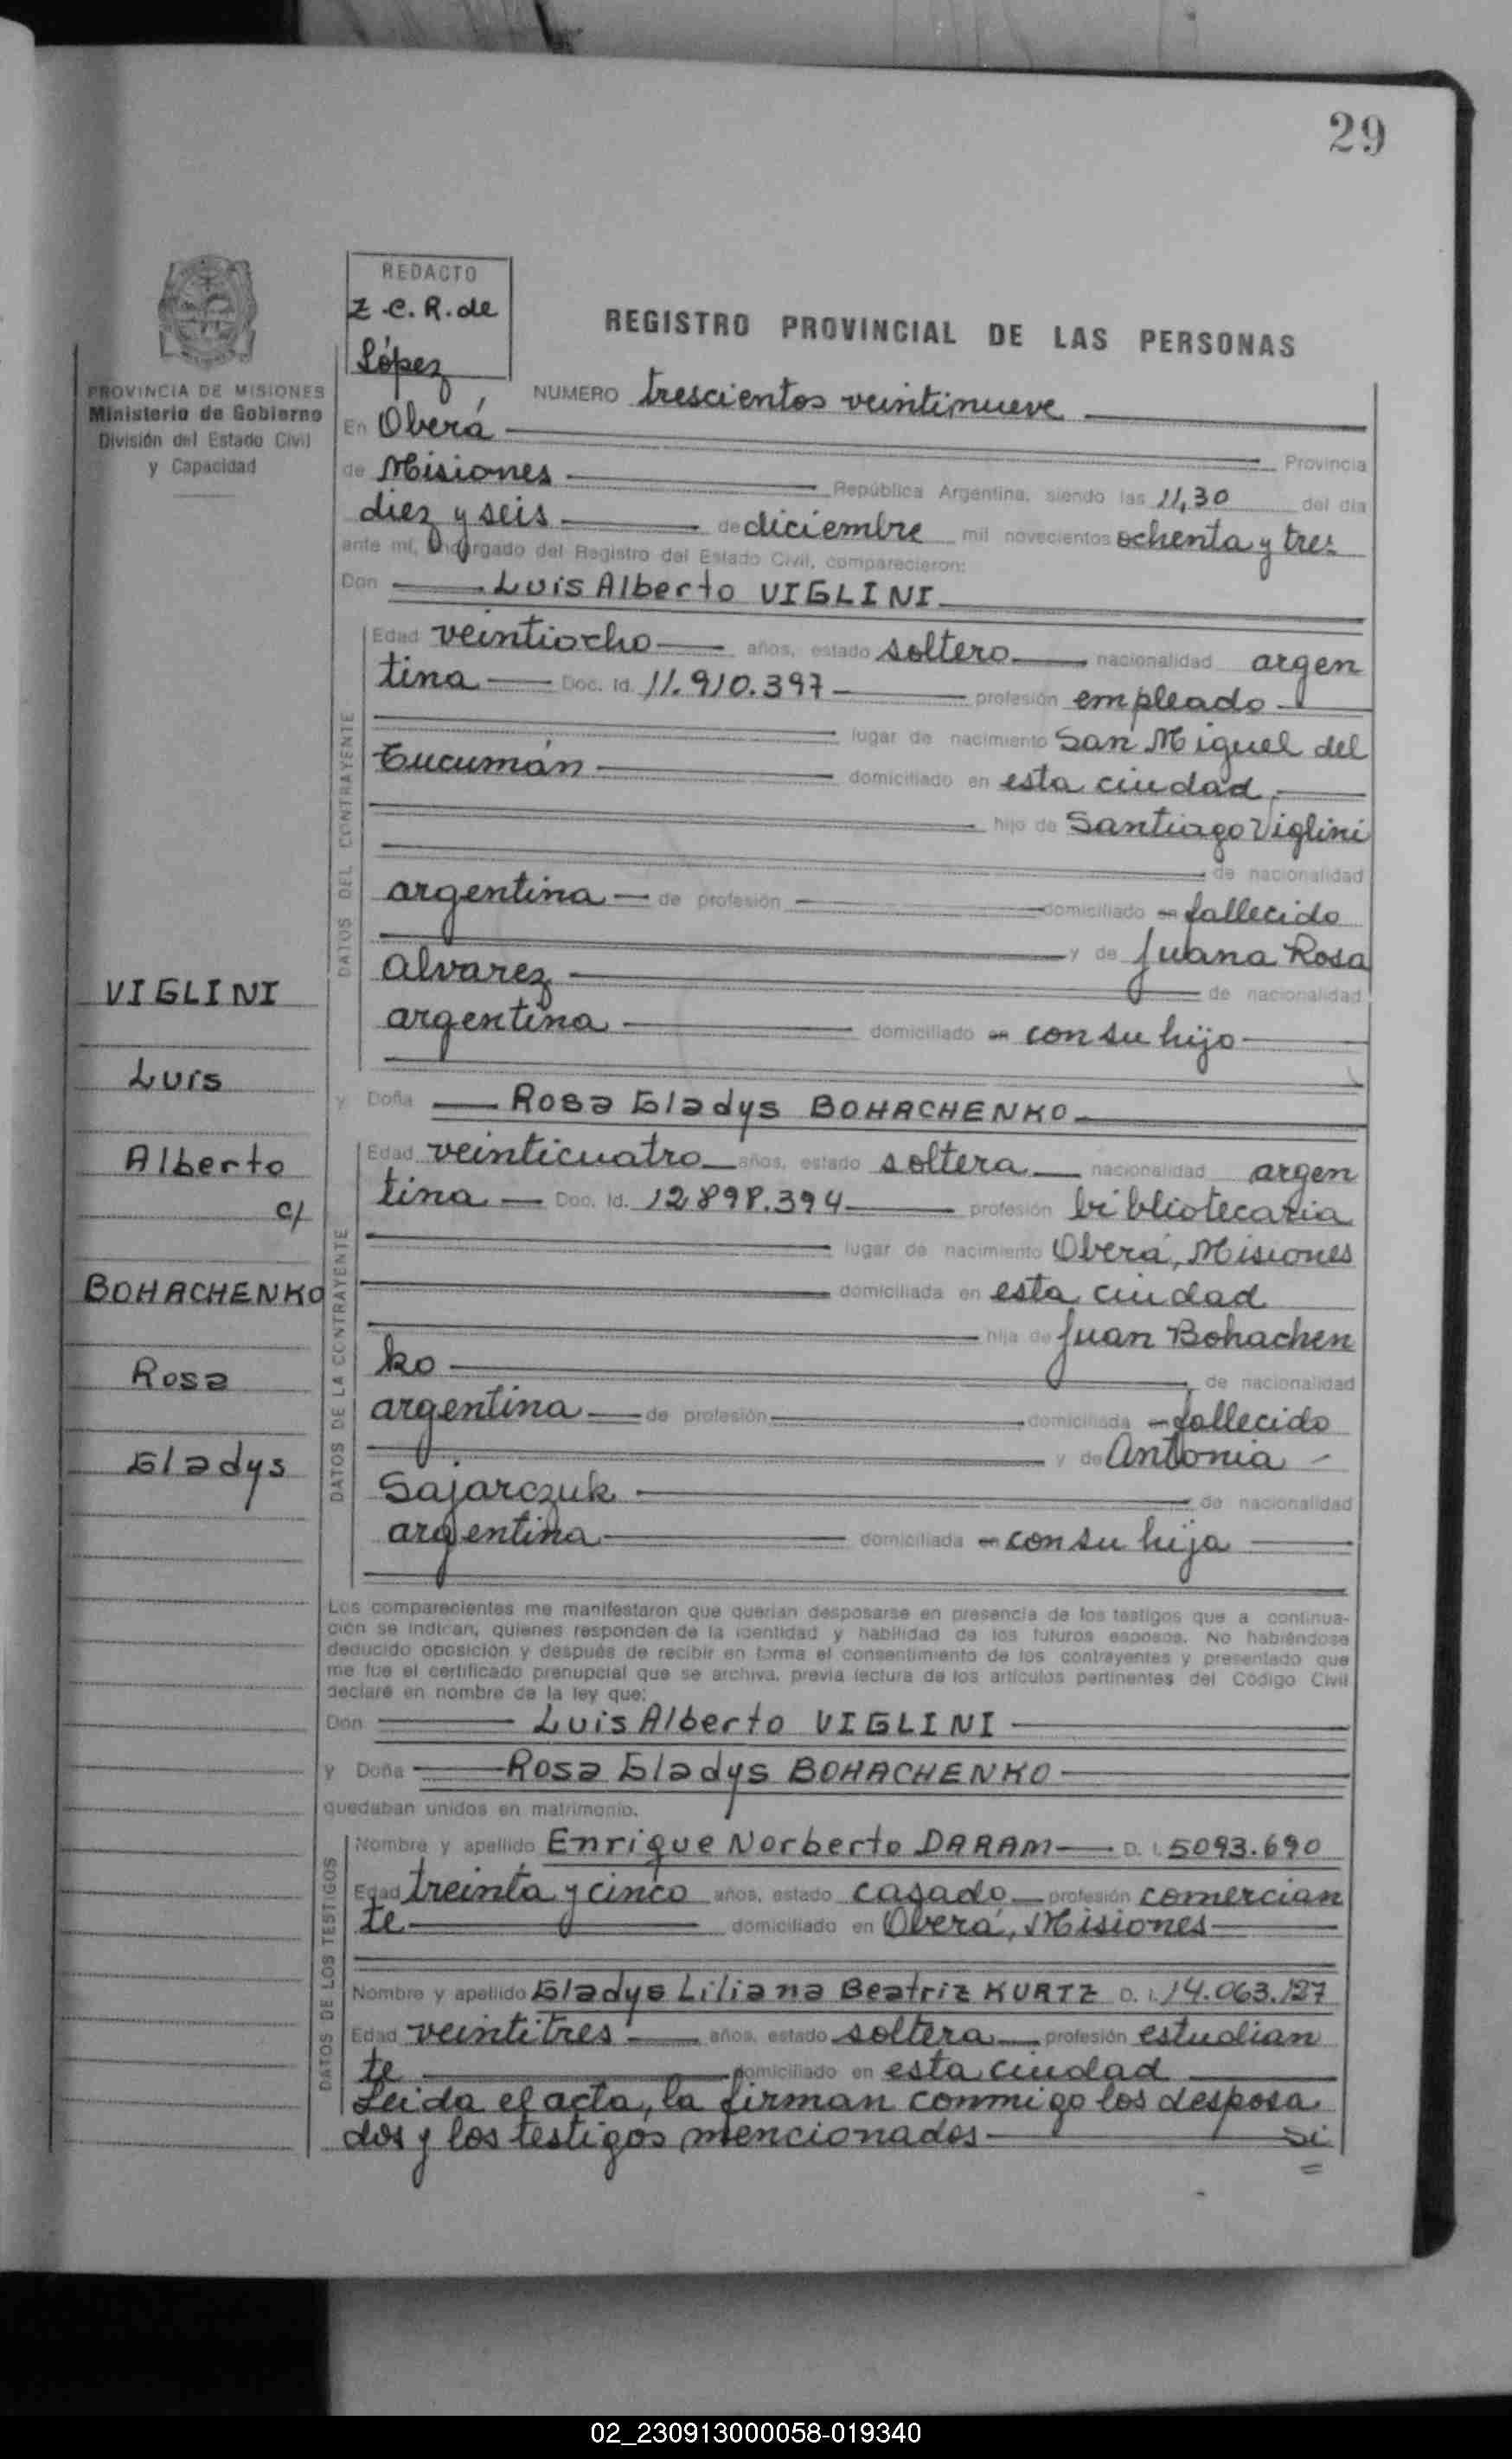 29
REDACTO
Z.C.R. de
López
REGISTRO PROVINCIAL DE LAS PERSONAS
PROVINCIA DE MISIONES
Ministerio de Gobierno
División del Estado Civil
y Capacidad
NUMERO trescientos veintinueve
En Oberá Provincia
de Misiones República Argentina, siendo las 11,30 del día
diez y seis de diciembre mil novecientos ochenta y tres
ante mí, Encargado del Registro del Estado Civil, comparecieron:
Don Luis Alberto VIGLINI
DATOS DEL CONTRAYENTE
Edad veintiocho años, estado soltero nacionalidad argen
tina Doc. Id. 11.910.397 profesión empleado
lugar de nacimiento San Miguel del
Tucumán domiciliado en esta ciudad
hijo de Santiago Viglini
de nacionalidad
argentina de profesión domiciliado en fallecido
y de Juana Rosa
Alvarez de nacionalidad
argentina domiciliado en con su hijo
VIGLINI
Luis
Alberto
c/
BOHACHENKO
Rosa
Gladys
y Doña Rosa Gladys BOHACHENKO
DATOS DE LA CONTRAYENTE
Edad veinticuatro años, estado soltera nacionalidad argen
tina Doc. Id. 12.898.394 profesión bibliotecaria
lugar de nacimiento Oberá, Misiones
domiciliada en esta ciudad
hija de Juan Bohachen
ko de nacionalidad
argentina de profesión domiciliada en fallecido
y de Antonia
Sajarczuk de nacionalidad
argentina domiciliada en con su hija
Los comparecientes me manifestaron que querían desposarse en presencia de los testigos que a continua-
ción se indican, quienes responden de la identidad y habilidad de los futuros esposos. No habiéndose
deducido oposición y después de recibir en forma el consentimiento de los contrayentes y presentado que
me fue el certificado prenupcial que se archiva, previa lectura de los artículos pertinentes del Código Civil
declaré en nombre de la ley que:
Don Luis Alberto VIGLINI
y Doña Rosa Gladys BOHACHENKO
quedaban unidos en matrimonio.
DATOS DE LOS TESTIGOS
Nombre y apellido Enrique Norberto DARAM D. I. 5093.690
Edad treinta y cinco años, estado casado profesión comercian
te domiciliado en Oberá, Misiones
Nombre y apellido Gladys Liliana Beatriz KURTZ D. I. 14.063.127
Edad veintitres años, estado soltera profesión estudian
te domiciliado en esta ciudad
Leida el acta, la firman conmigo los desposa
dos y los testigos mencionados Si
02_230913000058-019340